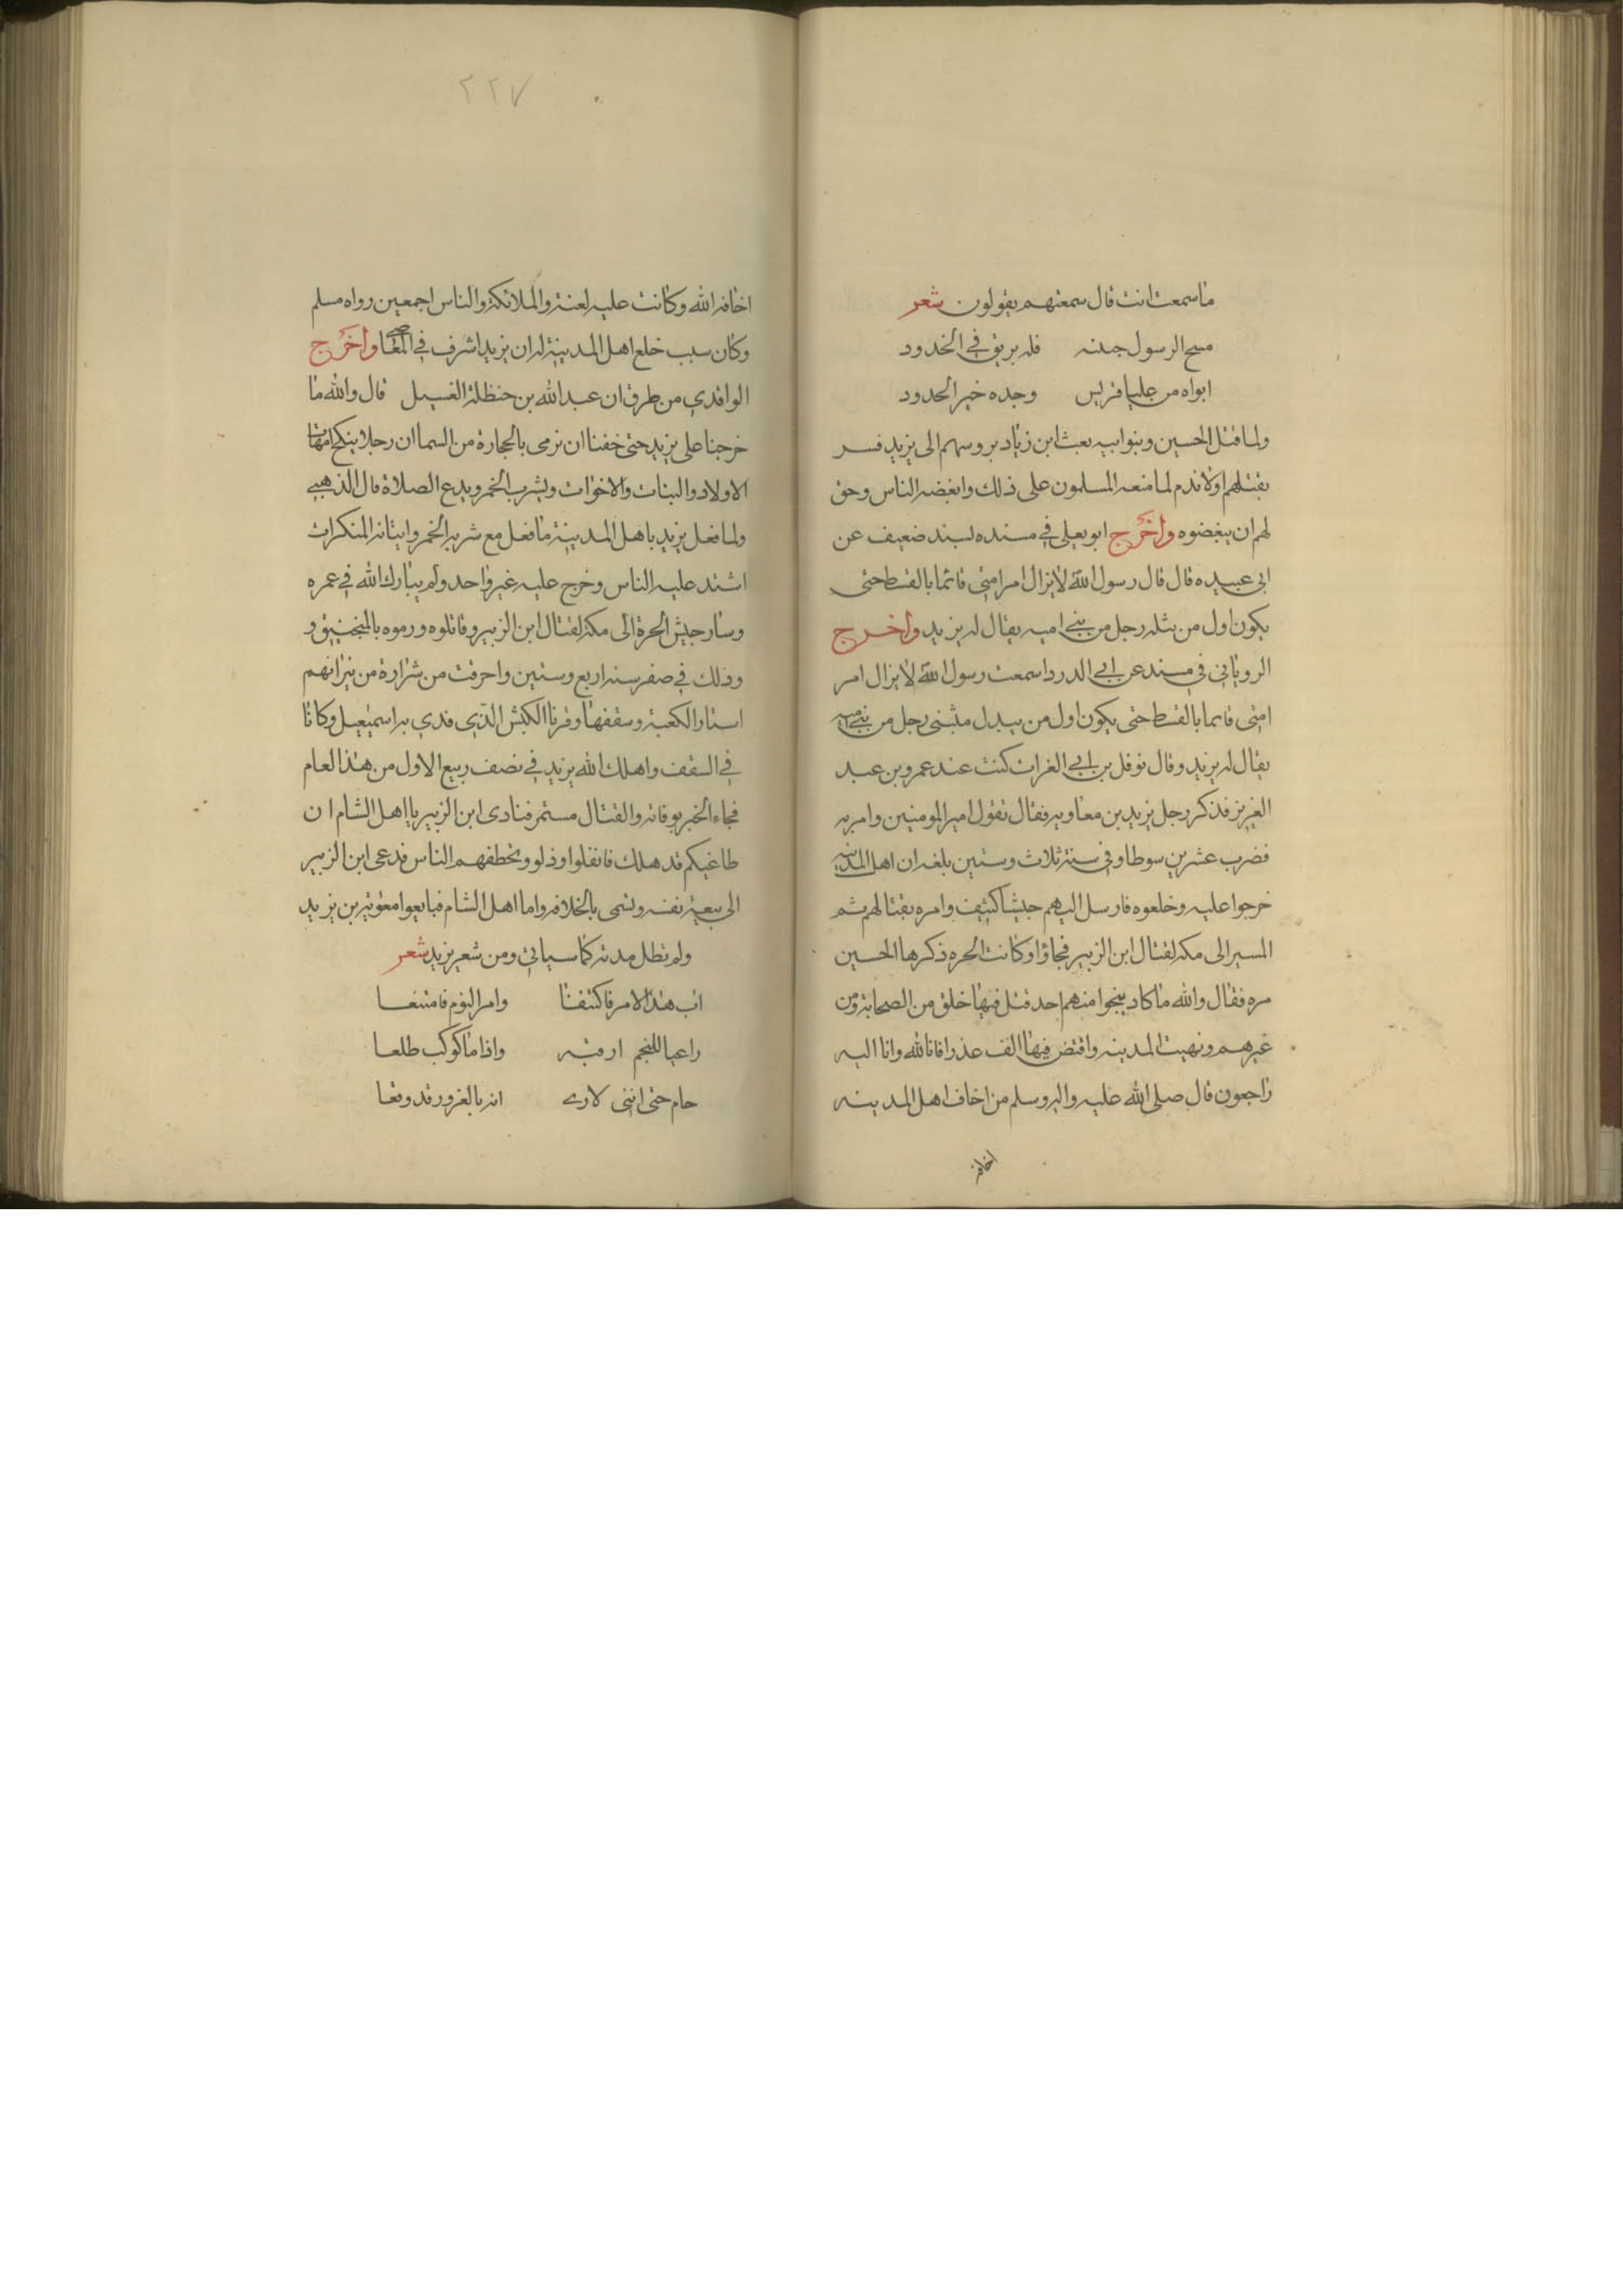 ما سمعت انت قال سمعتهم يقولون شعر
مسح الرسول جبينه فله بريق في الخدود
ابواه من عليا قريش وجده خير الجدود
ولما قتل الحسين وبنو ابيه بعث ابن زياد بروسهم الى يزيد فسر
بقتلهم اولا ندم لما منعه المسلمون على ذلك وابغضه الناس وحق
لهم ان يبغضوه واخرج ابو يعلى في مسنده بسند ضعيف عن
ابي عبيده قال قال رسول الله لا يزال امر امتي قائما بالقسط حتى
يكون اول من يثله رجل من بني اميه يقال له يزيد واخرج
الروياني في مسند عن ابي الدردا سمعت رسول الله لا يزال امر
امتي قائما بالقسط حتى يكون اول من يبدل رجل من بني اميه
يقال له يزيد وقال نوفل بن ابي الفرات كنت عند عمرو بن عبد
العزيز فذكر رجل يزيد بن معاويه فقال تقول امير المومنين وامر به
فضرب عشرين سوطا وفي سنة ثلاث وستين بلغه ان اهل المدينه
خرجوا عليه وخلعوه فارسل اليهم جيشا كثيف وامره بقتالهم ثم
المسير الى مكه لقتال ابن الزبير فجاؤا وكانت الحره ذكرها الحسين
مره فقال والله ما كاد ينجوا منهم احد قتل فيها خلق من الصحابة ومن
غيرهم ونهبت المدينه وافتض فيها الف عذرا فانا لله وانا اليه
راجعون قال صلى الله عليه واله وسلم من اخاف اهل المدينه
اخافه
٢٢٧
اخافه الله وكانت عليه لعنة والملائكة والناس اجمعين رواه مسلم
وكان سبب خلع اهل المدينة له ان يزيد اشرف في المعاصي واخرج
الواقدي من طرق ان عبد الله بن حنظلة الغسيل قال والله ما
خرجنا على يزيد حتى خفنا ان نرمى بالحجارة من السما ان رجلا ينكح امهات
الاولاد والبنات والاخوات ويشرب الخمر ويدع الصلاة قال الذهبي
ولما فعل يزيد باهل المدينة ما فعل مع شربه الخمر وايتانه المنكرات
اشتد عليه الناس وخرج عليه غير واحد ولم يبارك الله في عمره
وسار جيش الحرة الى مكة لقتال ابن الزبير وقاتلوه ورموه بالمنجنيق و
وذلك في صفر سنه اربع وستين واحرقت من شرارة من نيرانهم
استار الكعبة وسقفها وقرنا الكبش الذي فدي به اسمعيل وكانا
في السقف واهلك الله يزيد في نصف ربيع الاول من هذا العام
فجاء الخبر بوفاته والقتال مستمر فنادى ابن الزبير يا اهل الشام ان
طاغيكم قد هلك فانفلوا وذلو وتخطفهم الناس فدعى ابن الزبير
الى بيعة نفسه وتسمى بالخلافه واما اهل الشام فبايعوا معوية بن يزيد
ولم تطل مدته كما سياتي ومن شعر يزيد شعر
اب هذا الامر فاكتنفا وامر النوم فامتنعا
راعيا للنجم ارقبه واذا ما كوكب طلعا
حام حتى انني لارى انه بالغور قد وقعا